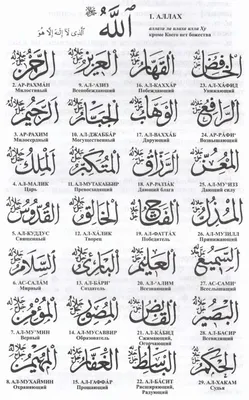 اللّٰه
الذي لا إله إلا هو
1. АЛЛАХ
аллази ла илаха илла Ху
кроме Коего нет божества
الرحمن
العزيز
القهار
الخافض
2. АР-РАХМАН
9. АЛ-‘АЗИЗ
16. АЛ-КАХХАР
23. АЛ-ХАФИД
Милостивый
Всепобеждающий
Победитель
Унижающий
الرحيم
الجبار
الوهاب
الرافع
3. АР-РАХИМ
10. АЛ-ДЖАББАР
17. АЛ-ВАХХАБ
24. АР-РАФИ‘
Милосердный
Могущественный
Дарующий
Возвышающий
الملك
المتكبر
الرزاق
المعز
4. АЛ-МАЛИК
11. АЛ-МУТАКАББИР
18. АР-РАЗЗАК
25. АЛ-МУ‘ИЗЗ
Царь
Превосходящий
Дающий блага
Дающий силу
القدوس
الخالق
الفتاح
المذل
5. АЛ-КУДДУС
12. АЛ-ХАЛИК
19. АЛ-ФАТТАХ
26. АЛ-МУЗИЛЛ
Священный
Творец
Победитель
Принижающий
السلام
البارئ
العليم
السميع
6. АС-САЛАМ
13. АЛ-БАРИ’
20. АЛ-‘АЛИМ
27. АС-САМИ‘
Мирный
Создатель
Всезнающий
Всеслышащий
المؤمن
المصور
القابض
البصير
7. АЛ-МУ’МИН
14. АЛ-МУСАВВИР
21. АЛ-КАБИД
28. АЛ-БАСИР
Верный
Образователь
Сжимающий,
Всевидящий
المهيمن
الغفار
الباسط
الحكم
8. АЛ-МУХАЙМИН
15. АЛ-ГАФФАР
22. АЛ-БАСИТ
29. АЛ-ХАКАМ
Охраняющий
Прощающий
Расширяющий,
Судья
Радующий